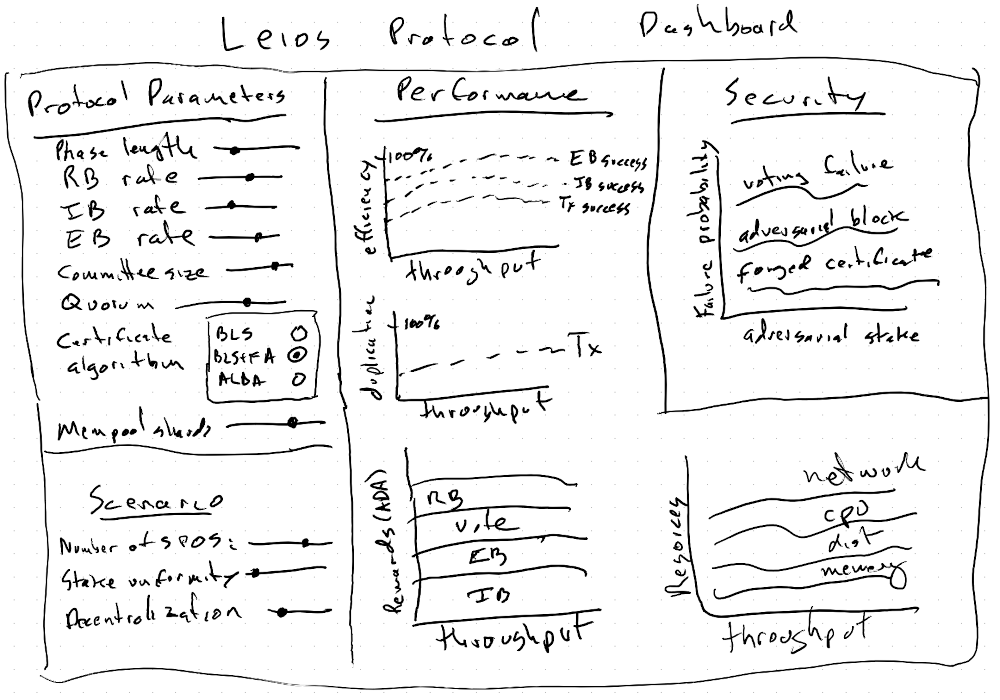 Leios Protocol Dashboard
Protocol Parameters
Phase length
RB rate
IB rate
EB rate
Committee size
Quorum
Certificate
algorithm
BLS
BLS+FA
ALBA
Mempool shards
Scenario
Number of SPOs:
Stake uniformity
Decentralization
Performance
efficiency
100%
EB success
IB success
Tx success
throughput
duplication
100%
Tx
throughput
Rewards (ADA)
RB
vote
EB
IB
throughput
Security
Failure probability
voting failure
adversarial block
forged certificate
adversarial stake
Resources
network
CPU
disk
memory
throughput